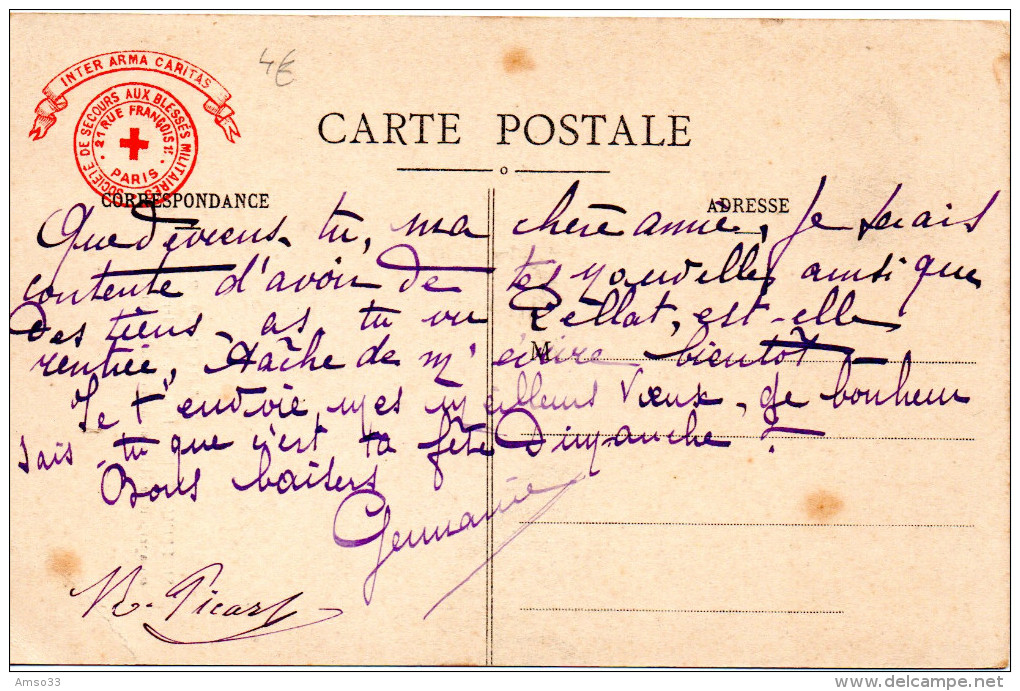 4€
INTER ARMA CARITAS
SOCIÉTÉ DE SECOURS AUX BLESSÉS MILITAIRES
21 RUE FRANÇOIS 1er
PARIS
CARTE POSTALE
CORRESPONDANCE
ADRESSE
M
Que deviens-tu, ma chère amie, je serais
contente d'avoir de tes nouvelles ainsi que
des tiens, as tu vu Pellat, est-elle
rentrée, tâche de m'écrire bientôt
Je t'envoie mes meilleurs vœux de bonheur
sais-tu que c'est ta fête Dimanche ?
Bons baisers
Germaine
Picart
Amso33
www.delcampe.net